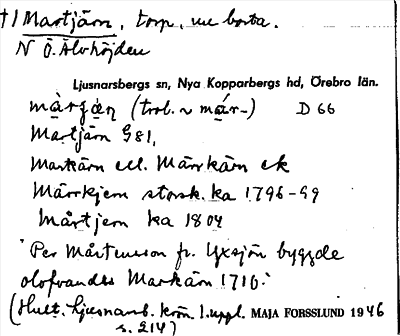 †1 Martjärn, torp, nu borta.
N Ö. Älvhöjden
Ljusnarsbergs sn, Nya Kopparbergs hd, Örebro län.
(trol. ~ mär-) D 66
Martjärn G 81,
Markärn ell. Märrkärn ek
Märrkjern storsk. ka 1796-99
Mårtjern ka 1804
"Per Mårtensson fr. Yxsjön byggde
olofvandes Markärn 1710."
(Hult. Ljusnarsb. krön. 1. uppl. MAJA FORSSLUND 1946
s. 214)